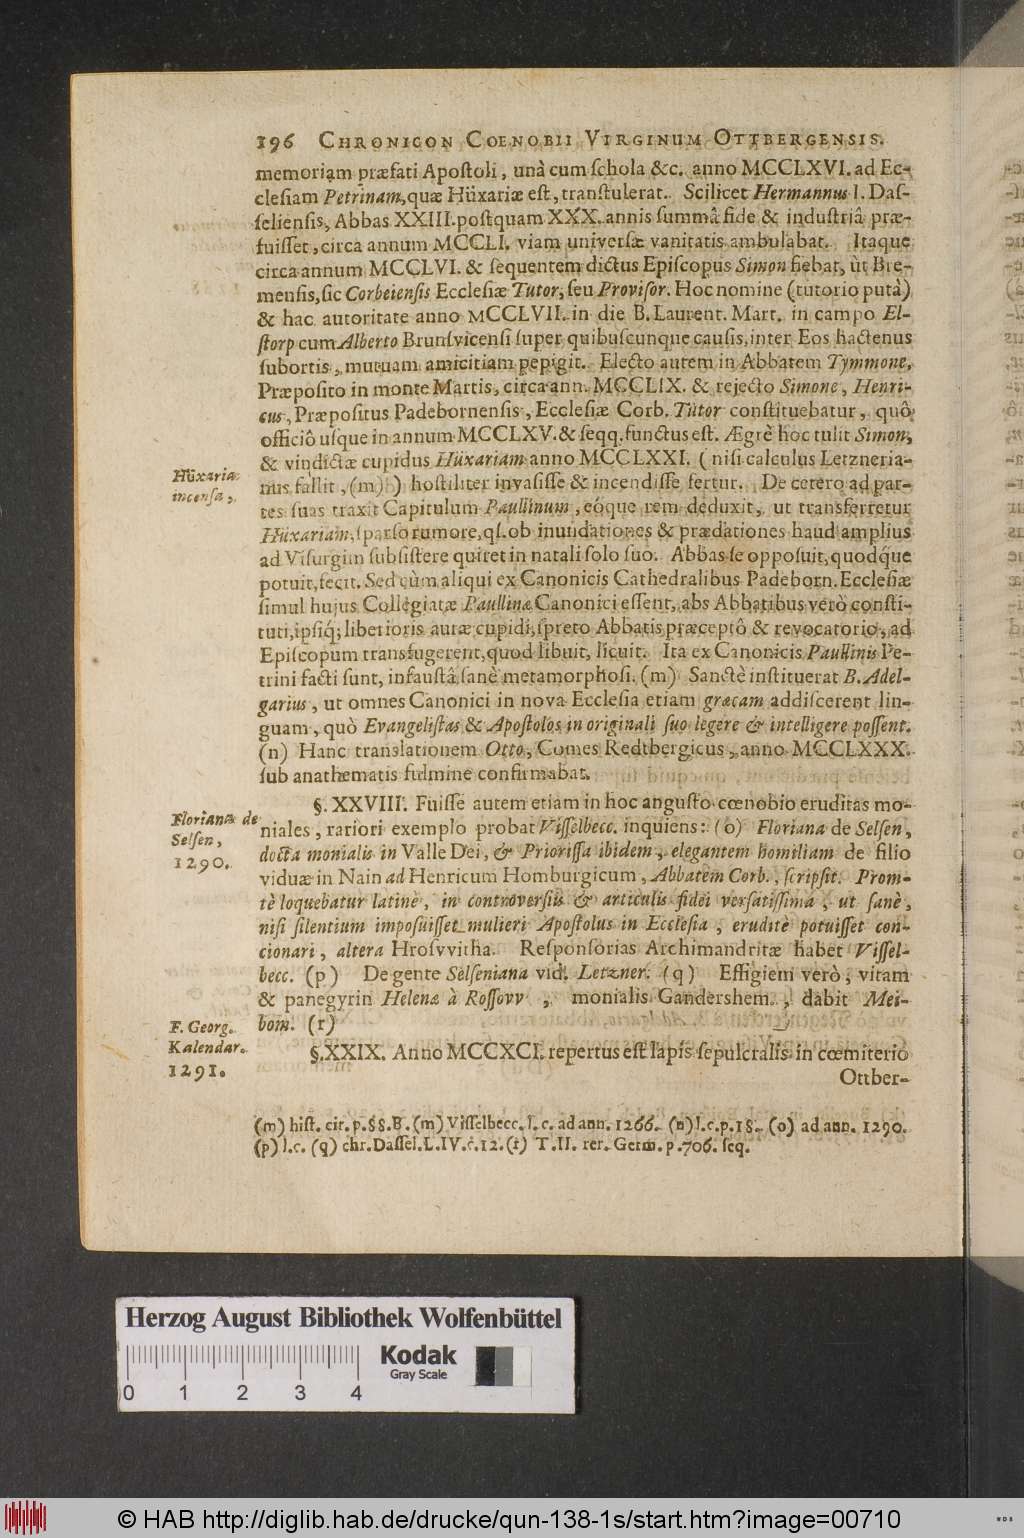 196 CHRONICON COENOBII VIRGINUM OTTBERGENSIS.
memoriam præfati Apoſtoli, unà cum ſchola &c. anno MCCLXVI. ad Ec-
cleſiam Petrinam, quæ Hüxariæ eſt, tranſtulerat. Scilicet Hermannus I. Daſ-
ſelienſis, Abbas XXIII. poſtquam XXX. annis ſummâ fide & induſtriâ præ-
fuiſſet, circa annum MCCLI. viam univerſæ vanitatis ambulabat. Itaque
circa annum MCCLVI. & ſequentem dictus Epiſcopus Simon fiebat, ùt Bre-
menſis, ſic Corbeienſis Eccleſiæ Tutor, ſeu Proviſor. Hoc nomine (tutorio putà)
& hac autoritate anno MCCLVII. in die B. Laurent. Mart. in campo El-
ſtorp cum Alberto Brunſvicenſi ſuper quibuſcunque cauſis, inter Eos hactenus
ſubortis, mutuam amicitiam pepigit. Electo autem in Abbatem Tymmone,
Præpoſito in monte Martis, circa ann. MCCLIX. & rejecto Simone, Henri-
cus, Præpoſitus Padebornenſis, Eccleſiæ Corb. Tutor conſtituebatur, quô
officiô uſque in annum MCCLXV. & ſeqq. functus eſt. Ægrè hoc tulit Simon,
& vindictæ cupidus Hüxariam anno MCCLXXI. (niſi calculus Letzneria-
Hüxaria
incenſa,
nus fallit, (m)) hoſtiliter invaſiſſe & incendiſſe fertur. De cetero ad par-
tes ſuas traxit Capitulum Paullinum, eóque rem deduxit, ut transferretur
Hüxariam, ſparſo rumore, qſ. ob inundationes & prædationes haud amplius
ad Viſurgim ſubſiſtere quiret in natali ſolo ſuo. Abbas ſe oppoſuit, quodq́ue
potuit, fecit. Sed cùm aliqui ex Canonicis Cathedralibus Padeborn. Eccleſiæ
ſimul hujus Collegiatæ Paullinæ Canonici eſſent, abs Abbatibus verò conſti-
tuti, ipſiq́; liberioris auræ cupidi, ſpreto Abbatis præceptô & revocatorio, ad
Epiſcopum transfugerent, quod libuit, licuit. Ita ex Canonicis Paullinis Pe-
trini facti ſunt, infauſtâ ſanè metamorphoſi. (m) Sanctè inſtituerat B. Adel-
garius, ut omnes Canonici in nova Eccleſia etiam græcam addiſcerent lin-
guam, quò Evangeliſtas & Apoſtolos in originali ſuo legere & intelligere poſſent.
(n) Hanc translationem Otto, Comes Redtbergicus, anno MCCLXXX.
ſub anathematis fulmine confirmabat.
§. XXVIII. Fuiſſe autem etiam in hoc anguſto cœnobio eruditas mo-
Florianæ de
Selſen,
1290.
niales, rariori exemplo probat Viſſelbecc. inquiens: (o) Floriana de Selſen,
docta monialis in Valle Dei, & Prioriſſa ibidem, elegantem homiliam de filio
viduæ in Nain ad Henricum Homburgicum, Abbatem Corb., ſcripſit. Prom-
tè loquebatur latinè, in controverſiis & articulis fidei verſatiſſimà, ut ſanè,
niſi ſilentium impoſuiſſet mulieri Apoſtolus in Eccleſia, eruditè potuiſſet con-
cionari, altera Hroſvvitha. Reſponſorias Archimandritæ habet Viſſel-
becc. (p) De gente Selſeniana vid. Letzner. (q) Effigiem verò, vitam
& panegyrin Helenæ à Roſſovv, monialis Gandershem., dabit Mei-
bom. (r)
F. Georg.
Kalendar.
1291.
§. XXIX. Anno MCCXCI. repertus eſt lapis ſepulcralis in cœmiterio
Ottber-
(m) hiſt. cit. p. 88. B. (m) Viſſelbecc. l. c. ad ann. 1266. (n) l. c. p. 18. (o) ad ann. 1290.
(p) l. c. (q) chr. Daſſel. L. IV. c. 12. (r) T. II. rer. Germ. p. 706. ſeq.
Herzog August Bibliothek Wolfenbüttel
Kodak
Gray Scale
0 1 2 3 4
© HAB http://diglib.hab.de/drucke/qun-138-1s/start.htm?image=00710